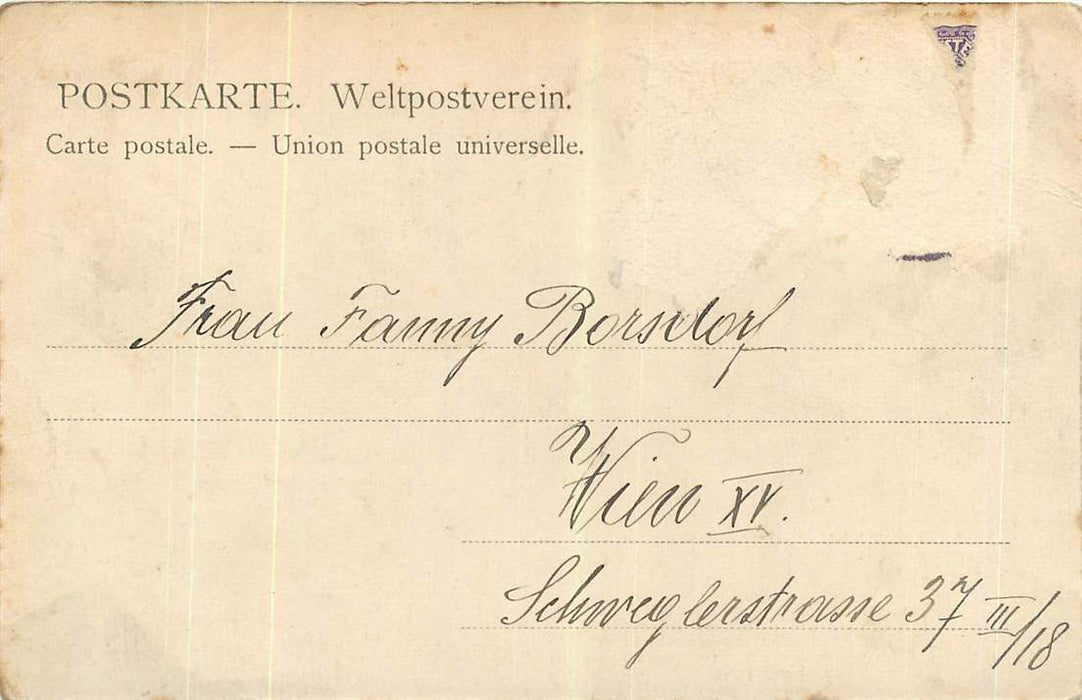 POSTKARTE. Weltpostverein.
Carte postale. — Union postale universelle.
Frau Fanny Borsdorf
Wien XV.
Schweglerstrasse 37 III/18